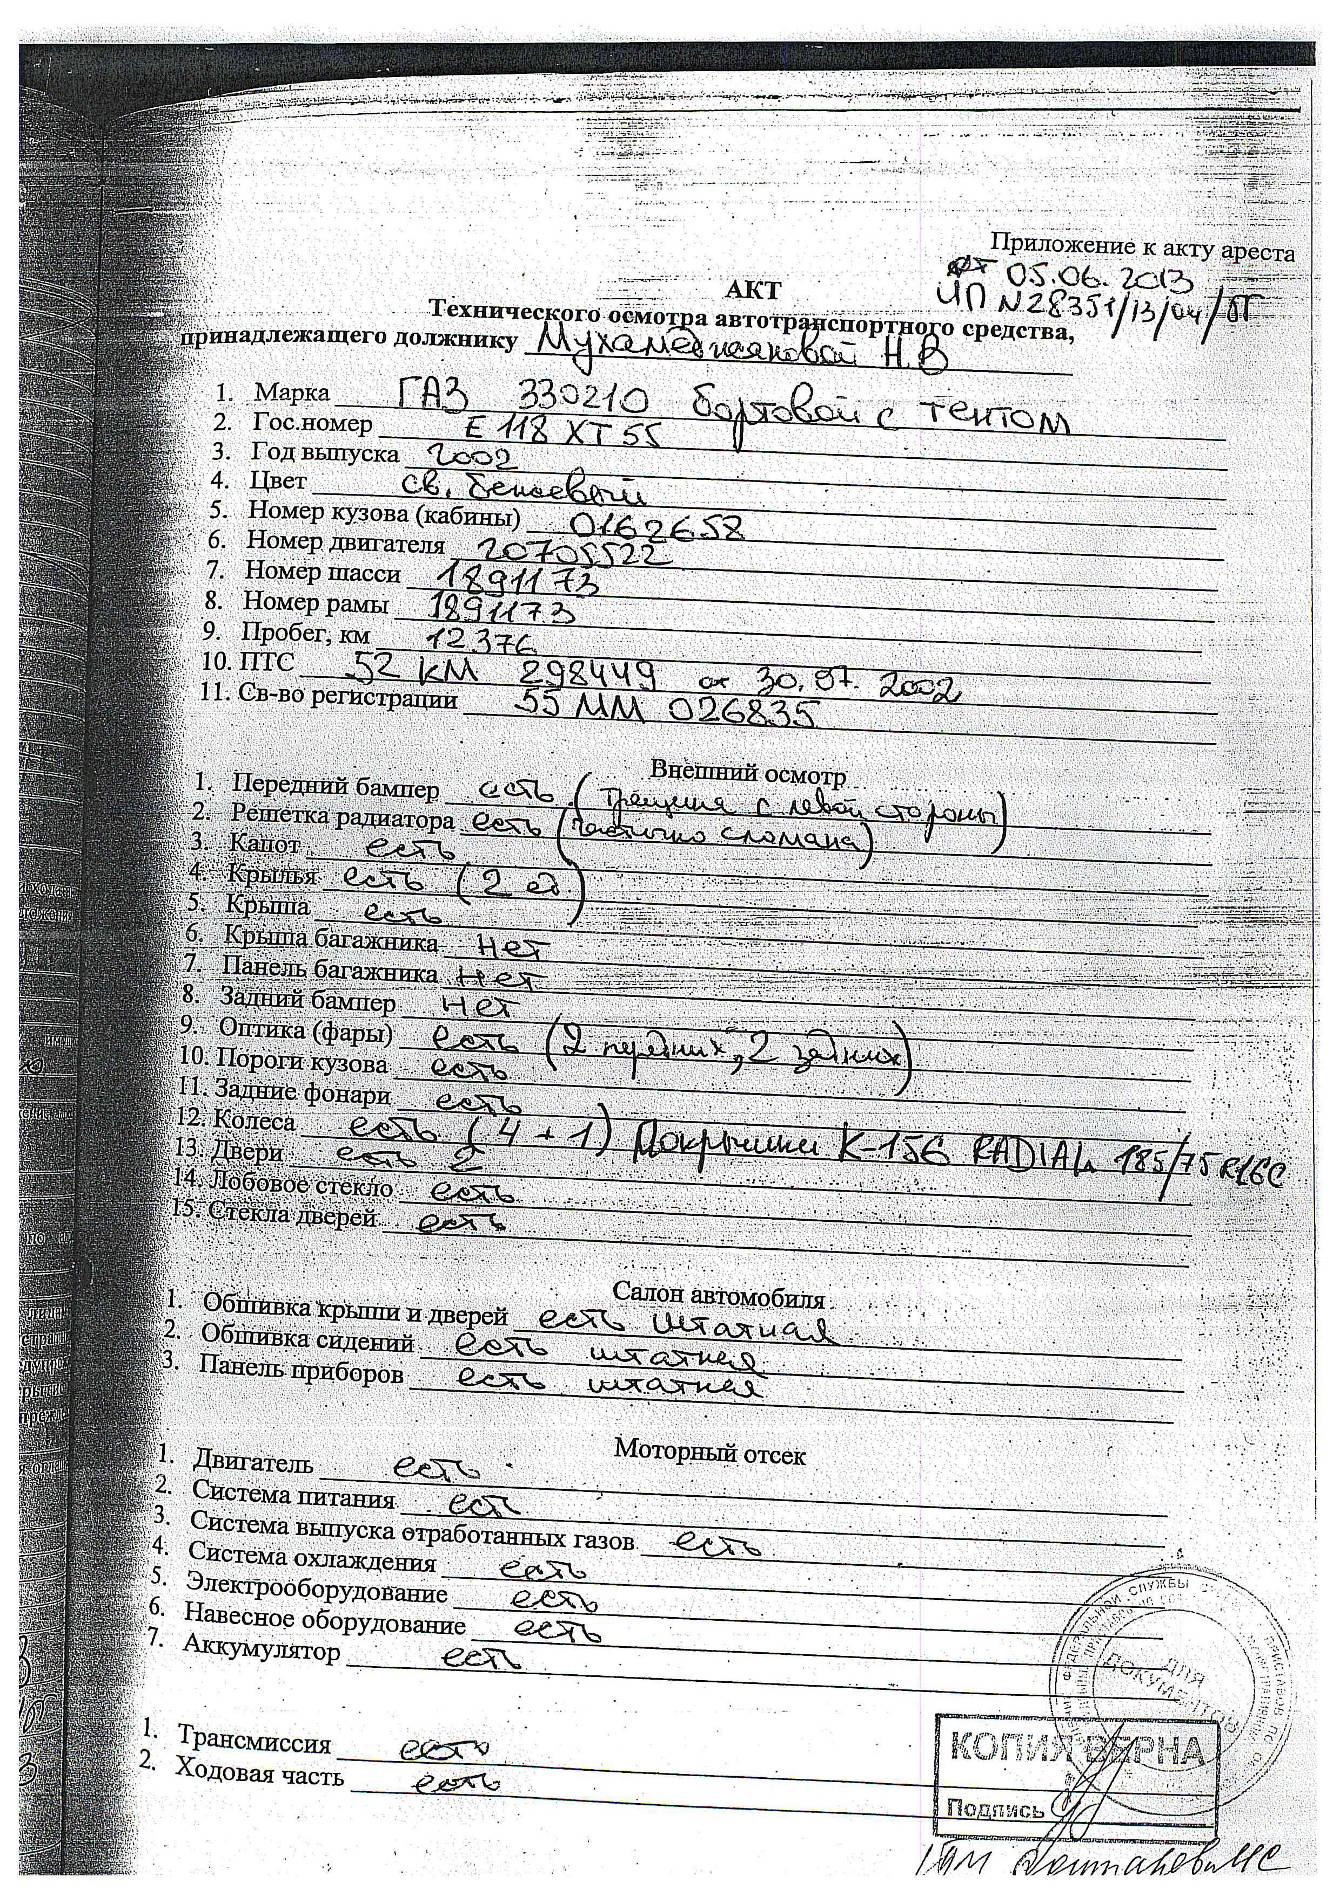 Приложение к акту ареста
от 05.06.2013
ИП N28351/13/04/55
АКТ
Технического осмотра автотранспортного средства,
принадлежащего должнику Мухамеджановой Н.В
1. Марка ГАЗ 330210 бортовой с тентом
2. Гос.номер Е 118 ХТ 55
3. Год выпуска 2002
4. Цвет св. бежевый
5. Номер кузова (кабины) 0162658
6. Номер двигателя 20705522
7. Номер шасси 1891173
8. Номер рамы 1891173
9. Пробег, км 12376
10. ПТС 52 КМ 298449 от 30.07.2002
11. Св-во регистрации 55 ММ 026835
Внешний осмотр
1. Передний бампер есть (трещина с левой стороны)
2. Решетка радиатора есть (частично сломана)
3. Капот есть
4. Крылья есть (2 ед.)
5. Крыша есть
6. Крыша багажника нет
7. Панель багажника нет
8. Задний бампер нет
9. Оптика (фары) есть (2 передних, 2 задних)
10. Пороги кузова есть
11. Задние фонари есть
12. Колеса есть (4 + 1) Покрышки К-156 RADIAL 185/75 R16C
13. Двери есть 2
14. Лобовое стекло есть
15. Стекла дверей есть
Салон автомобиля
1. Обшивка крыши и дверей есть штатная
2. Обшивка сидений есть штатная
3. Панель приборов есть штатная
Моторный отсек
1. Двигатель есть
2. Система питания есть
3. Система выпуска отработанных газов есть
4. Система охлаждения есть
5. Электрооборудование есть
6. Навесное оборудование есть
7. Аккумулятор есть
1. Трансмиссия есть
2. Ходовая часть есть
ДЛЯ
ДОКУМЕНТОВ
КОПИЯ ВЕРНА
Подпись